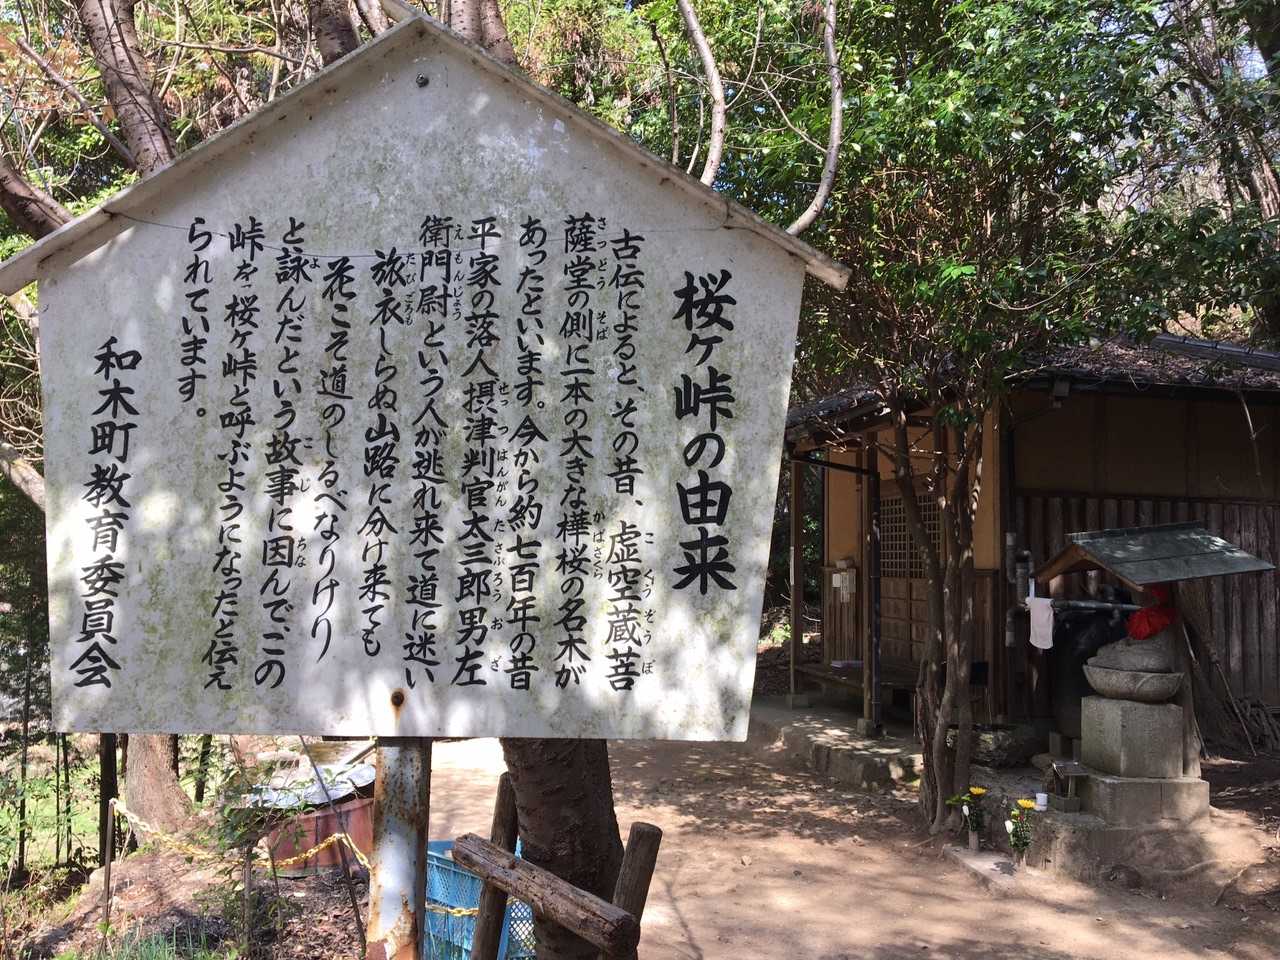 桜ヶ峠の由来
古伝によると、その昔、虚空蔵菩
薩堂の側に一本の大きな樺桜の名木が
あったといいます。今から約七百年の昔
平家の落人摂津判官太三郎男左
衛門尉という人が逃れ来て道に迷い
旅衣しらぬ山路に分け来ても
花こそ道のしるべなりけり
と詠んだという故事に因んで、この
峠を桜ヶ峠と呼ぶようになったと伝え
られています。
和木町教育委員会